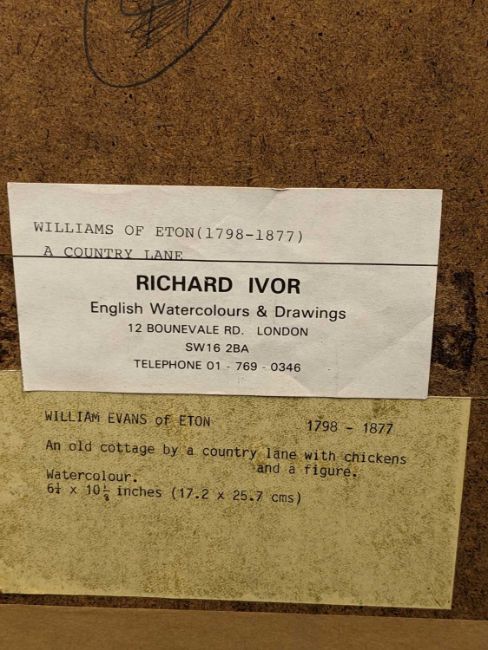 WILLIAMS OF ETON(1798-1877)
A COUNTRY LANE
RICHARD IVOR
English Watercolours & Drawings
12 BOUNEVALE RD. LONDON
SW16 2BA
TELEPHONE 01 - 769 - 0346
WILLIAM EVANS of ETON 1798 - 1877
An old cottage by a country lane with chickens
and a figure.
Watercolour.
6¼ x 10⅛ inches (17.2 x 25.7 cms)